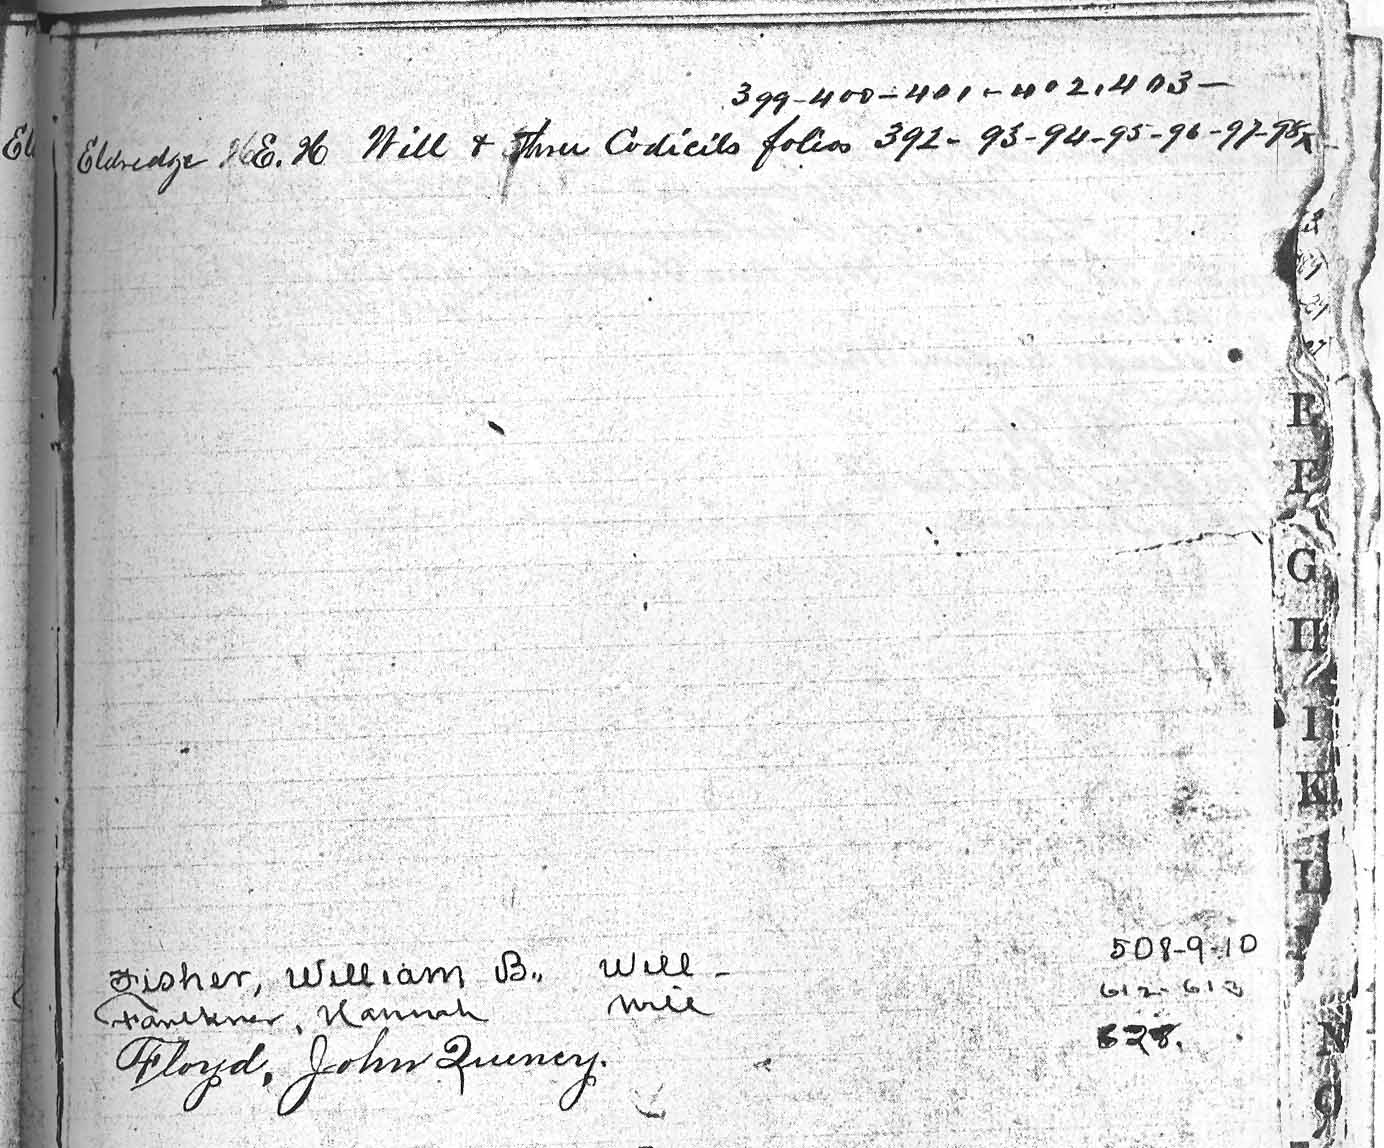 399-400-401-402.403-
El
Eldredge H.E.H Will & three Codicils folios 392-93-94-95-96-97-98
E
F
G
H
I
K
L
Fisher, William B., Will - 508-9-10
Faulkner, Hannah Will 612-613
Floyd, John Quincy. 628.
N
O